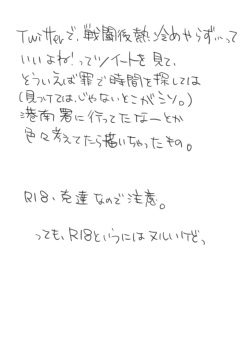 Twitterで、戦闘後熱冷めやらず…って
いいよね!ってツイートを見て、
どういえば罪で時間を探しては
(見つけては、じゃないとこがミソ。)
港南署に行ってたなーとか
色々考えてたら描いちゃったもの。
R18、克達なので注意。
っても、R18というにはヌルいけどっ